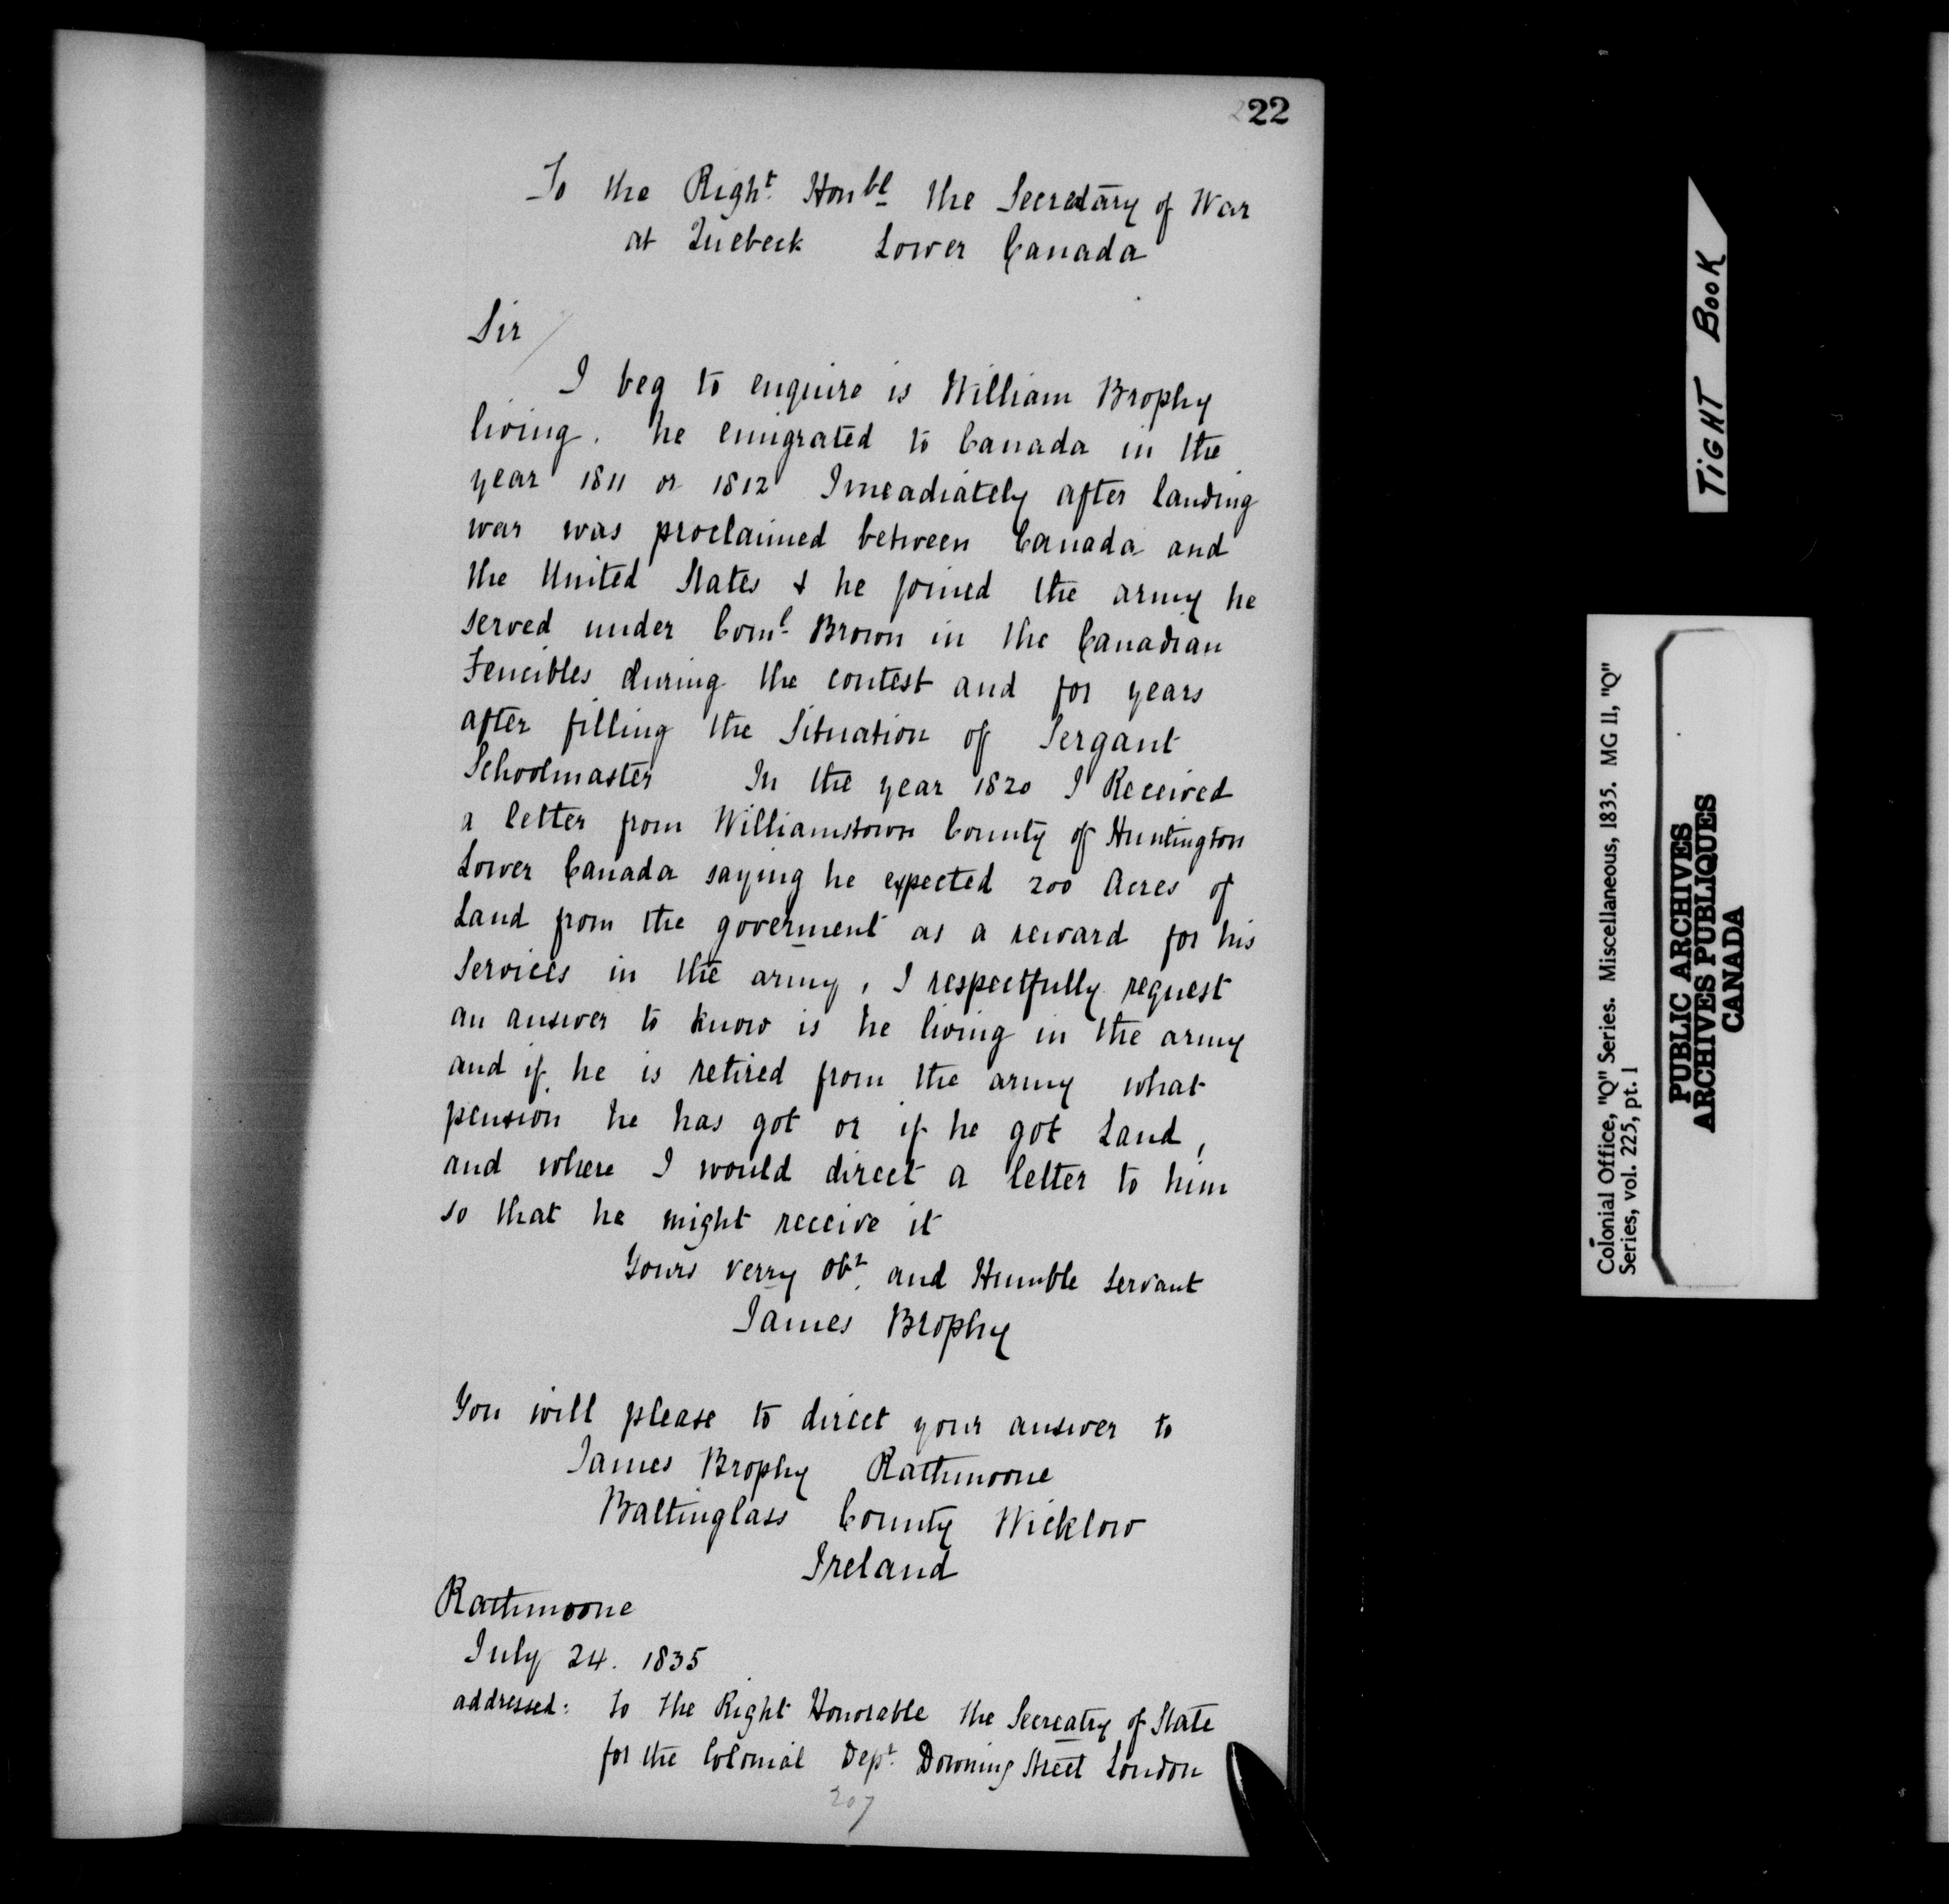 222
To the Right Honbl the Secretary of War
at Quebeck Lower Canada
Sir
I beg to enquire is William Brophy
living. he emigrated to Canada in the
year 1811 or 1812 Imeadiately after landing
war was proclaimed between Canada and
the United States & he joined the army he
served under Coml Brown in the Canadian
Fencibles during the contest and for years
after filling the Situation of Sergant
Schoolmaster In the year 1820 I Received
a letter from Williamstown County of Huntington
Lower Canada saying he expected 200 Acres of
Land from the goverment as a reward for his
Services in the army, I respectfully request
an answer to know is he living in the army
and if he is retired from the army what
pension he has got or if he got Land,
and where I would direct a letter to him
so that he might receive it
Yours verry Obt. and Humble Servant
James Brophy
You will please to direct your answer to
James Brophy Rathmoone
Baltinglass County Wicklow
Ireland
Rathmoone
July 24. 1835
addressed: To the Right Honorable the Secreatry of State
for the Colonial Dept. Downing Street London
207
TIGHT BOOK
Colonial Office, "Q" Series. Miscellaneous, 1835. MG 11, "Q"
Series, vol. 225, pt. 1
PUBLIC ARCHIVES
ARCHIVES PUBLIQUES
CANADA